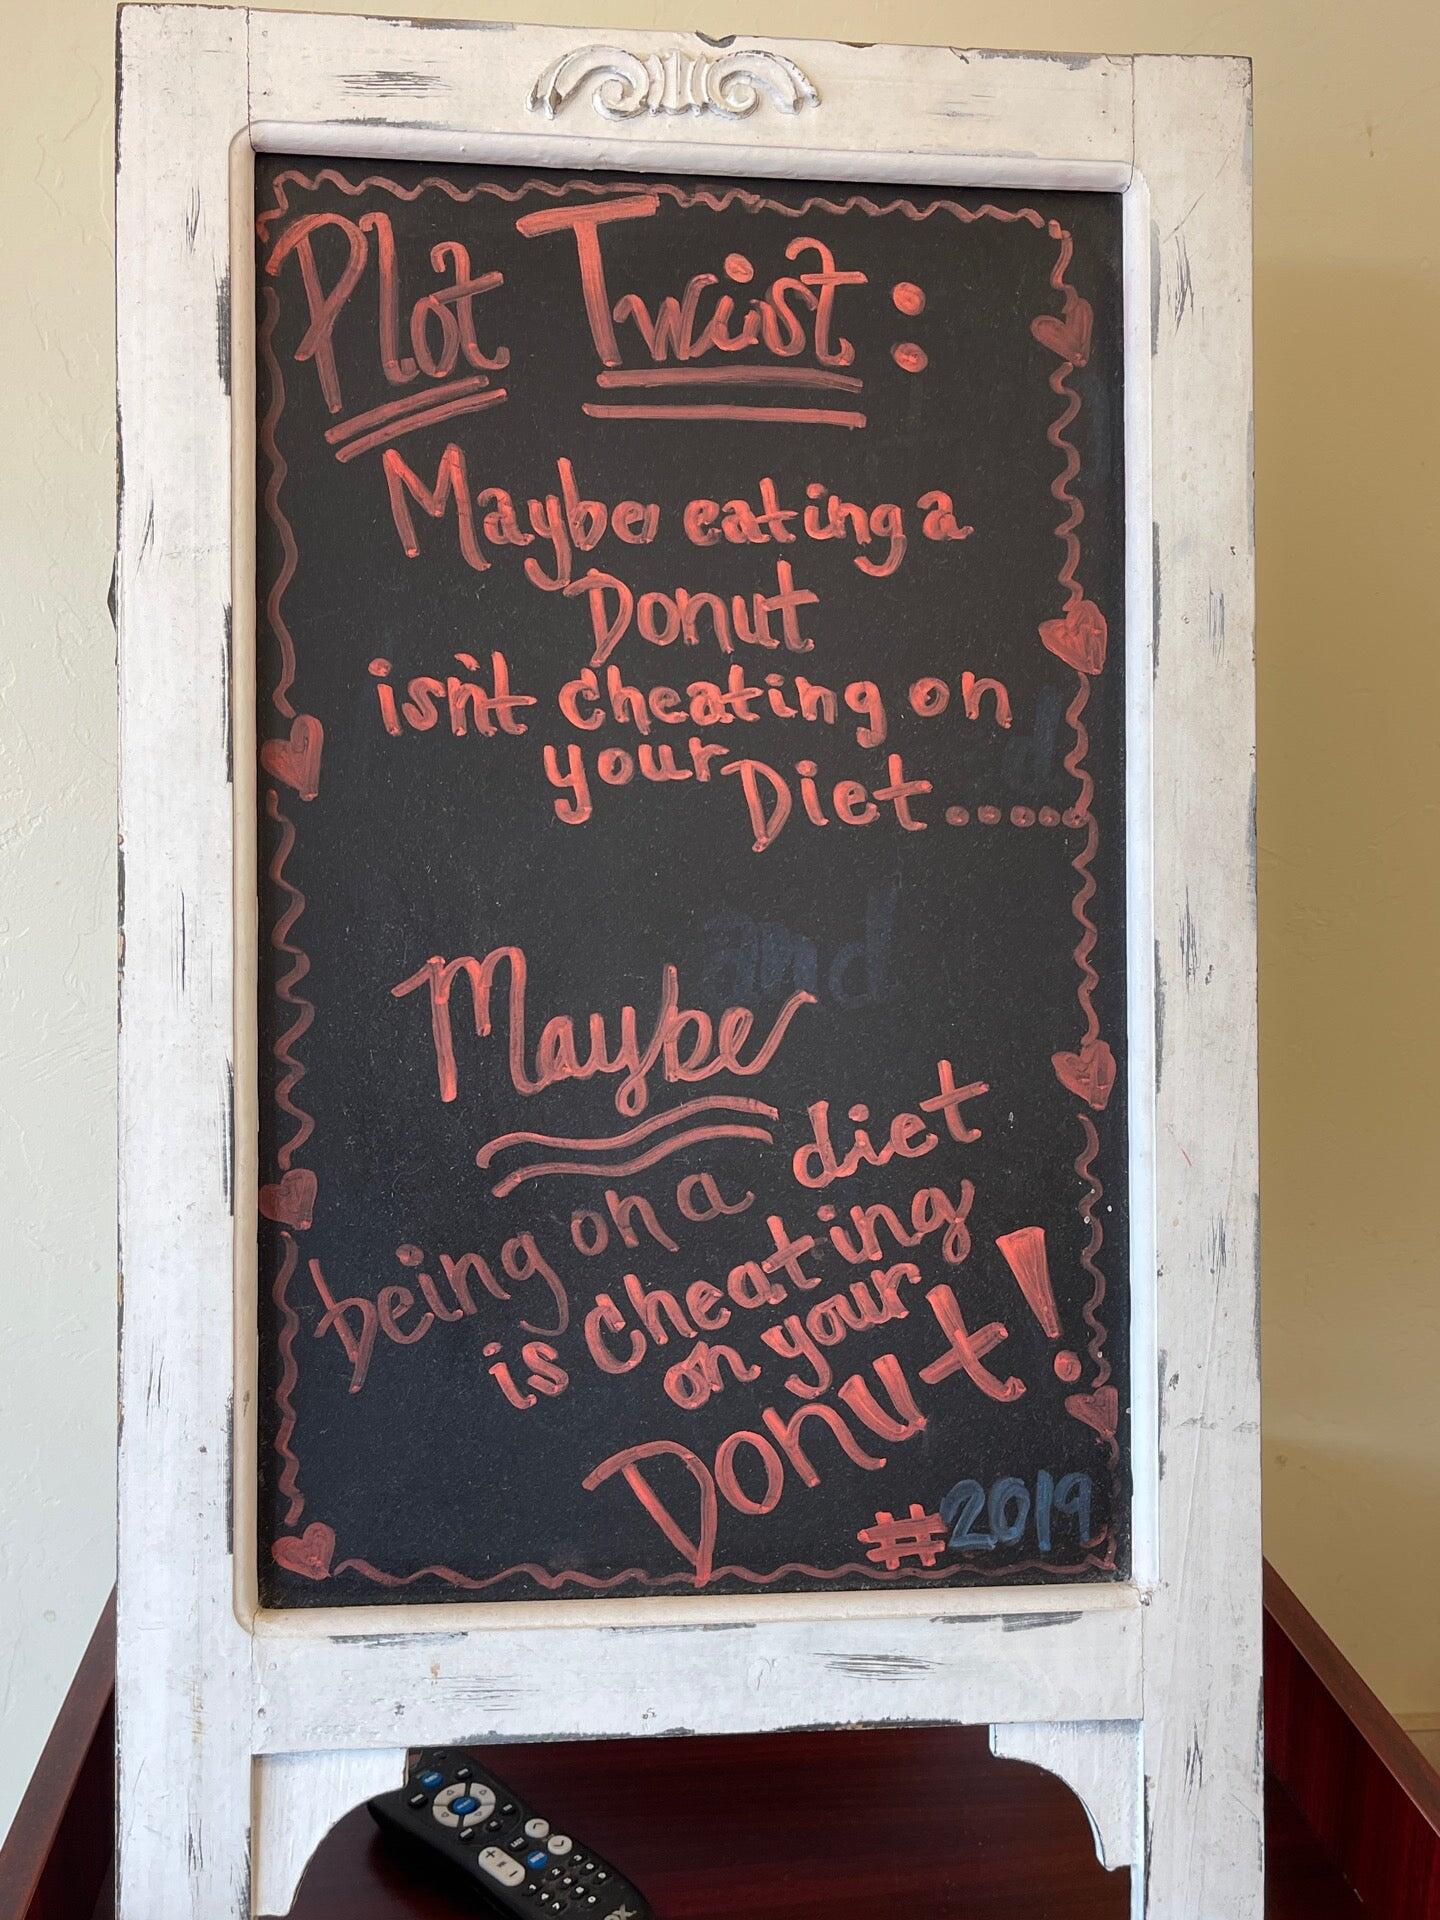 Plot Twist:
Maybe eating a
Donut
isn't cheating on
your Diet.....
and
Maybe
being on a diet
is cheating
on your
Donut!
#2019